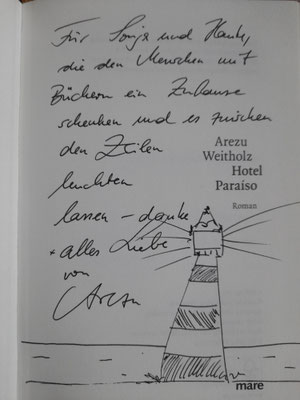 Für Sonja und Hauke,
die den Menschen mit
Büchern ein Zuhause
schenken und es zwischen
den Zeilen
leuchten
lassen – danke
+ alles Liebe
von
Arezu
Arezu
Weitholz
Hotel
Paraíso
Roman
mare